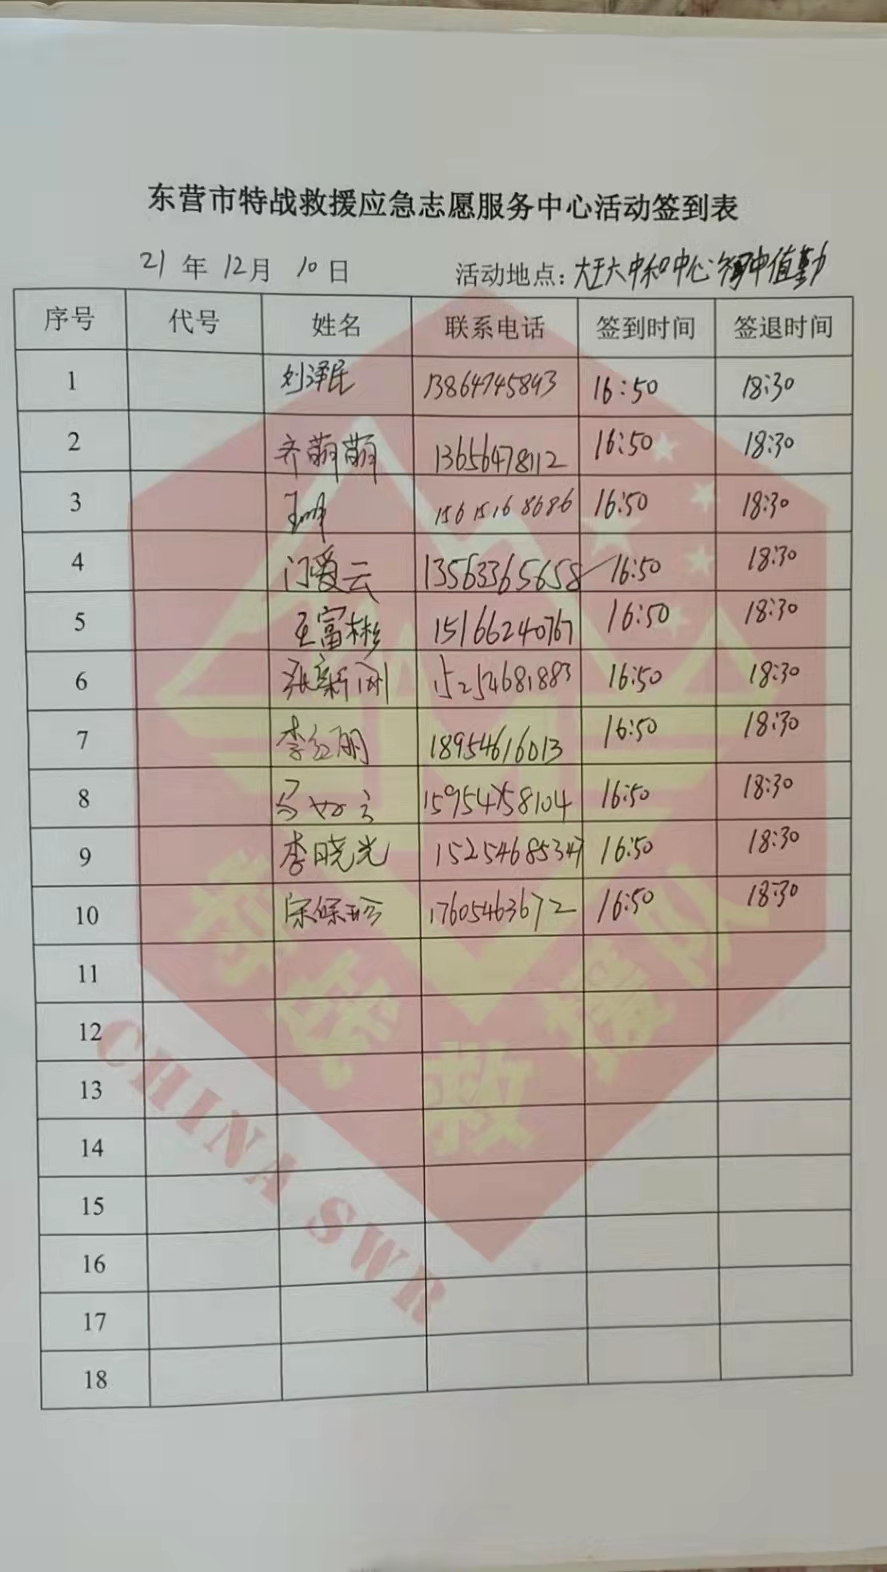 东营市特战救援应急志愿服务中心活动签到表
21 年 12月 10 日 活动地点: 大王六中和中心 值勤
序号 代号 姓名 联系电话 签到时间 签退时间
1 刘泽民 13864745893 16:50 18:30
2 齐萌萌 13656478112 16:50 18:30
3 15615168686 16:50 18:30
4 门爱云 13563365658 16:50 18:30
5 王富彬 15166240767 16:50 18:30
6 张新刚 15254681883 16:50 18:30
7 李红丽 18954616013 16:50 18:30
8 15954758104 16:50 18:30
9 李晓光 15254685347 16:50 18:30
10 宋保珍 17605463672 16:50 18:30
11
12
13
14
15
16
17
18
特战救援队
CHINA SWR